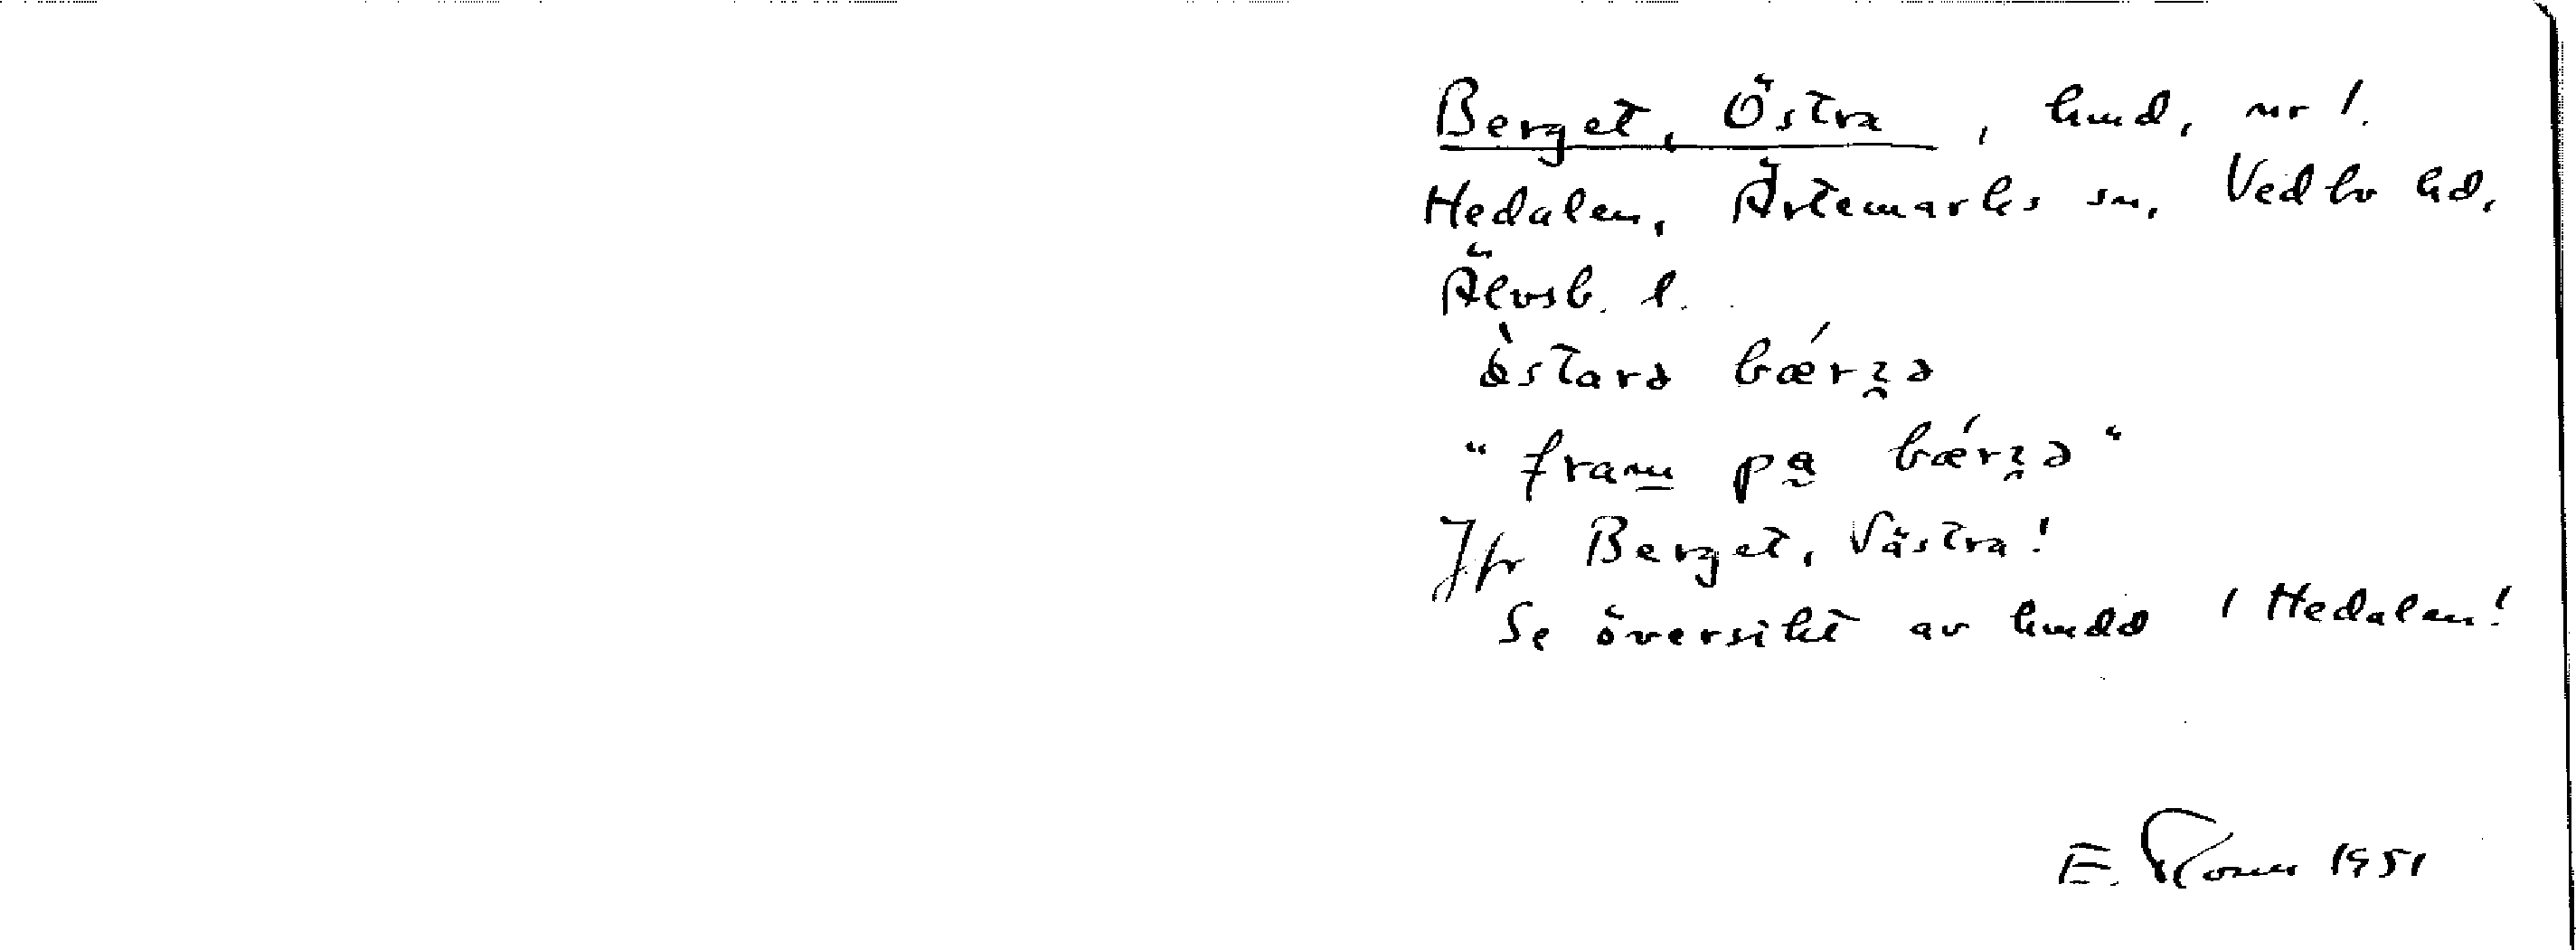 Berget, Östra, hmd, nr 1.
Hedalen, Ärtemarks sn, Vedbo hd,
Älvsb. l.
ò̀starə bǽrʒə
"fram pa bǽrʒə"
Jfr Berget, Västra!
Se översikt av hmdd i Hedalen!
E. 1951